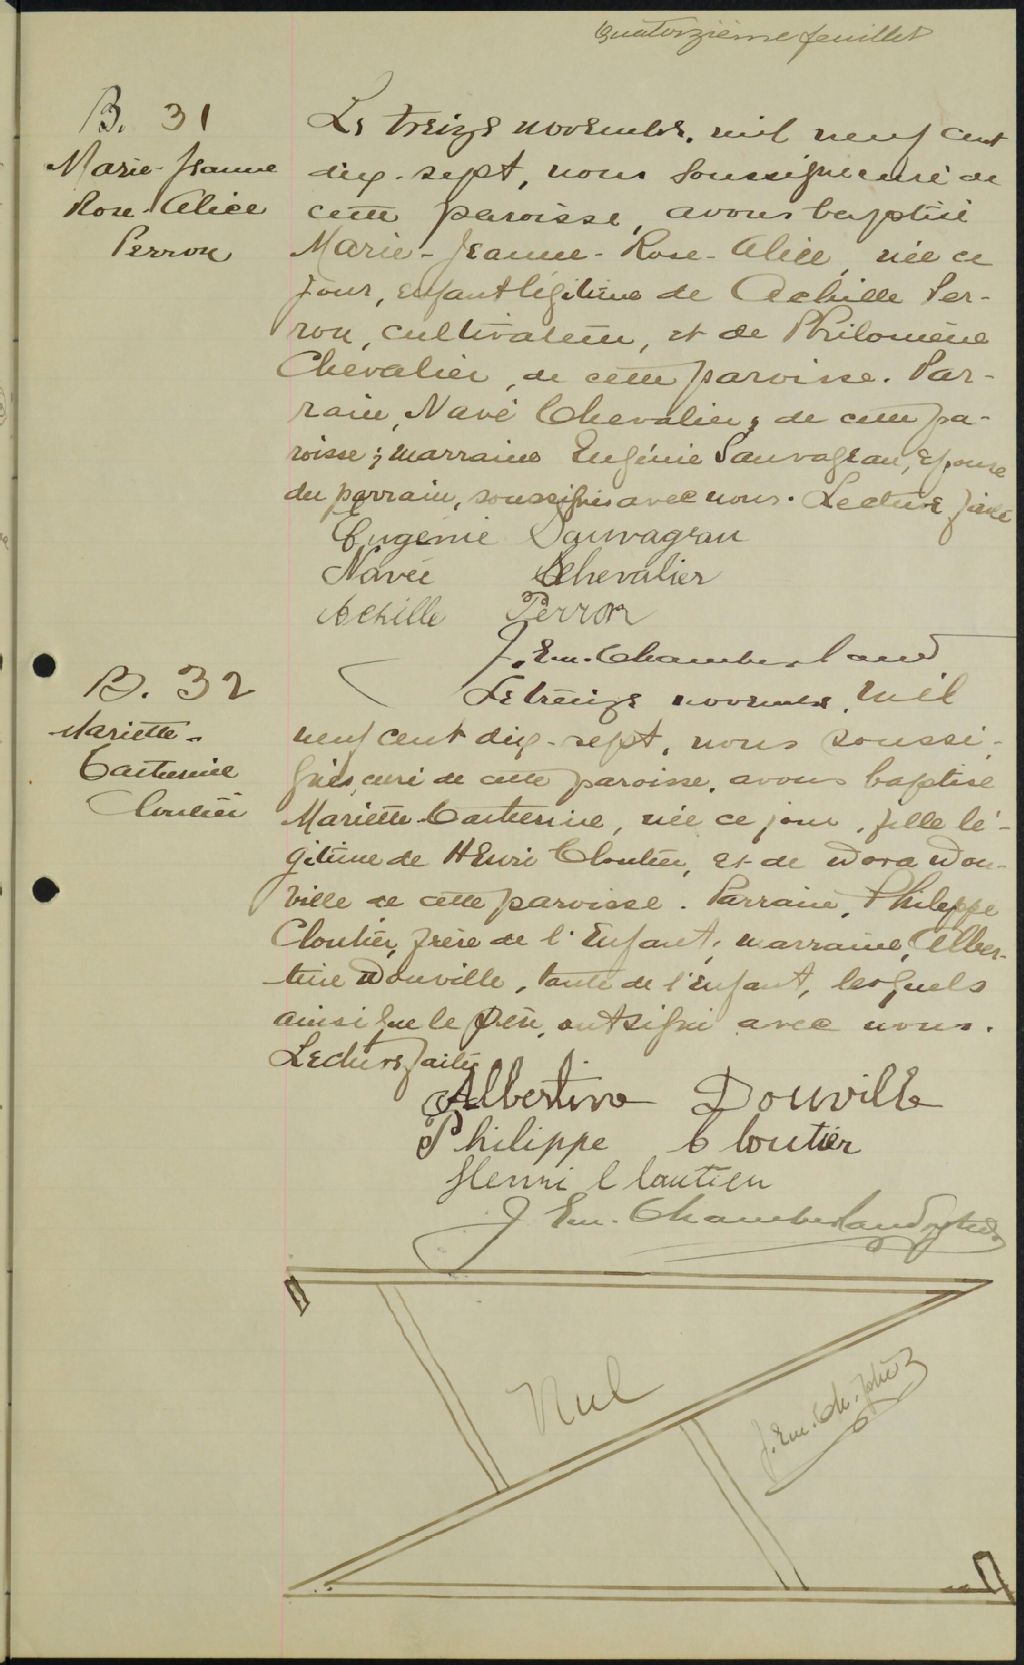 Quatorzième feuillet
B. 31
Marie-Jeanne
Rose-Alice
Perron
Le treize novembre, mil neuf cent
dix-sept, nous soussigné curé de
cette paroisse, avons baptisé
Marie-Jeanne-Rose-Alice, née ce
jour, enfant légitime de Achille Per-
ron, cultivateur, et de Philomène
Chevalier, de cette paroisse. Par-
rain, Navé Chevalier, de cette pa-
roisse; marraine Eugénie Sauvageau, épouse
du parrain, soussignés avec nous. Lecture faite
Eugénie Sauvagrau
Navée Chevalier
Achille Perron
J. Em. Chamberland
B. 32
Mariette-
Catherine
Cloutier
Le treize novembre, mil
neuf cent dix-sept, nous soussi-
gnés, curé de cette paroisse, avons baptisé
Mariette-Catherine, née ce jour, fille lé-
gitime de Henri Cloutier, et de Dora Dou-
ville de cette paroisse. Parrain, Philippe
Cloutier, frère de l'enfant, marraine, Alber-
tine Douville, tante de l'enfant, lesquels
ainsi que le père, ont signé avec nous.
Lecture faite
Albertine Douville
Philippe Cloutier
Henri Cloutier
J. Em. Chamberland ptre
Nul
J. Em. Ch. ptre